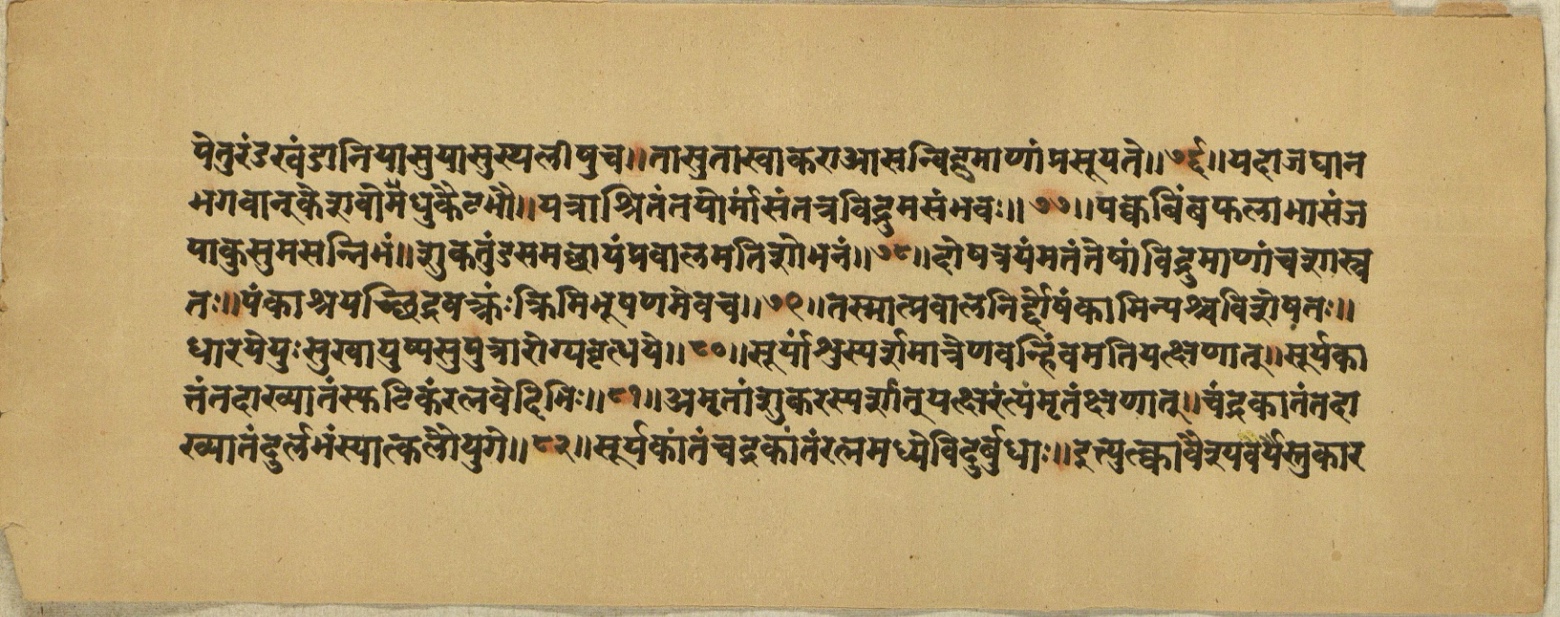 पेतुरंडखंडानियासुयासुस्यलीषुच॥तासुताखाकराआसन्विद्रुमाणांप्रसूयते॥७६॥यदाजघान
भगवान्केशवोमधुकैटभौ॥पत्राश्रितंतयोर्मांसंतत्रविद्रुमसंभवः॥७७॥पक्वबिंबफलाभासंज
पाकुसुमसन्निभं॥शुकतुंडसमच्छायंप्रवालमतिशोभनं॥७८॥दोषत्रयंमतंतेषांविद्रुमाणांचशास्त्र
तः॥पंकाश्रयच्छिद्रवक्त्रंःक्रिमिभूषणमेवच॥७९॥तस्मात्प्रवालनिर्द्दोषंकामिन्यश्चविशेषतः॥
धारयेयुःसुखायुष्यसुपुत्रारोग्यवृत्धये॥८०॥सूर्यांशुस्पर्शमात्रेणवन्हिंवमतियत्क्षणात्॥सूर्यका
त्तंतदाख्यातंस्फटिकंरत्नवेदिभिः॥८१॥अमृतांशुकरस्पर्शात्तुयत्क्षरंत्यंमृतंक्षणात्॥चंद्रकातंतदा
ख्यातंदुर्लभंस्यात्कलौयुगे॥८२॥सूर्यकांतंचद्रकांतंरत्नमध्येविदुर्बुधाः॥इत्युत्क्वावैश्यवर्यैस्तुकार